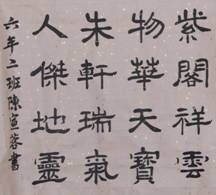 紫閣祥雲
物華天寶
朱軒瑞氣
人傑地靈
六年二班陳宣蓉書